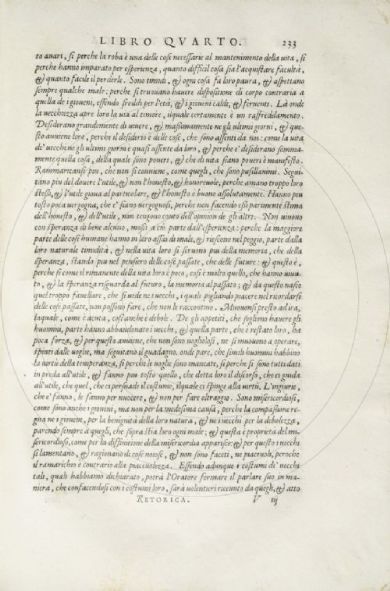 LIBRO QVARTO. 233
to auari, sì perche la robba è una delle cose necessarie al mantenimento della uita, sì
perche hanno imparato per esperienza, quanto difficil cosa sia l'acquistare facultà,
& quanto facile il perderle. Sono timidi, & ogni cosa fa loro paura, & aspettano
sempre qualche male: perche si truouano hauere dispositione di corpo contraria a
quella de i gioueni, essendo freddi per l'età, & i giouení caldi, & feruenti. Là onde
la uecchiezza apre loro la uia al timore, il quale certamente è un raffreddamento.
Desiderano grandemente di uiuere, & massimamente ne gli ultimi giorni, & que
sto auuiene loro, perche il desiderio è delle cose, che sono assenti da noi: come la uita
de' uecchi ne gli ultimi giorni è quasi assente da loro, & perche e' desiderano somma-
mente quella cosa, della quale sono poueri, & che di uita siano poueri è manifesto.
Rammaricansi poi, che non si conuiene, come quegli, che sono pusillanimi. Segui-
tano più del douere l'utile, & non l'honesto, & honoreuole, perche amano troppo loro
stessi, & l'utile gioua al particolare, & l'honesto è buono assolutamente. Hanno piu
tosto poca uergogna, che e' siano uergognosi, perche non facendo essi parimente stima
dell'honesto, & dell'utile, non tengono conto dell'opinion de gli altri. Non uiuono
con speranza di bene alcuno, mossi a ciò parte dall'esperienza: perche la maggiore
parte delle cose humane hanno in loro assai di male, & riescono nel peggio, parte dalla
loro naturale timidità, & nella uita loro si seruono piu della memoria, che della
speranza, stando piu nel pensiero delle cose passate, che delle future: & questo è,
perche sì come il rimanente della uita loro è poco, così è molto quello, che hanno uiuu-
to, & la speranza riguarda al futuro, la memoria al passato; & da questo nasce
quel troppo fauellare, che si uede ne' uecchi, i quali pigliando piacere nel ricordarsi
delle cose passate, non possono fare, che non le raccontino. Muouonsi presto ad ira,
la quale, come è acuta, così anche è debole. De gli appetiti, che sogliono hauere gli
huomini, parte hanno abbandonato i uecchi, & quella parte, che è restata loro, ha
poca forza, & per questo auuiene, che non sono uogliolosi, ne si muouono a operare,
spinti dalle uoglie, ma seguitano il guadagno. onde pare, che simili huomini habbino
la uirtù della temperanza, sì perche le uoglie sono mancate, sì perche si sono tutti dati
in preda all'utile, & fanno piu tosto quello, che detta loro il discorso, che ci guida
all'utile, che quel, che ci persuade il costume, il quale ci spinge alla uirtù. L'ingiurie,
che e' fanno, le fanno per nuocere, & non per fare oltraggio. Sono misericordiosi,
come sono anche i giouení, ma non per la medesima causa, perche la compassione re-
gna ne i giouení, per la benignità della loro natura, & ne i uecchi per la debolezza,
parendo sempre a quegli, che soprastia loro ogni male; & questa è proprietà del mi-
sericordioso, come per la diffinitione della misericordia apparisce: & per questo i uecchi
si lamentano, & ragionano di cose noiose, & non sono faceti, ne piaceuoli, peroche
il ramarichío è contrario alla piaceuolezza. Essendo adunque i costumi de' uecchi
tali, quali habbiamo dichiarato, potrà l'Oratore formare il parlare suo in ma-
niera, che confacendosi con i costumi loro, sarà uolentieri riceuuto da quegli, & atto
RETORICA. V iij